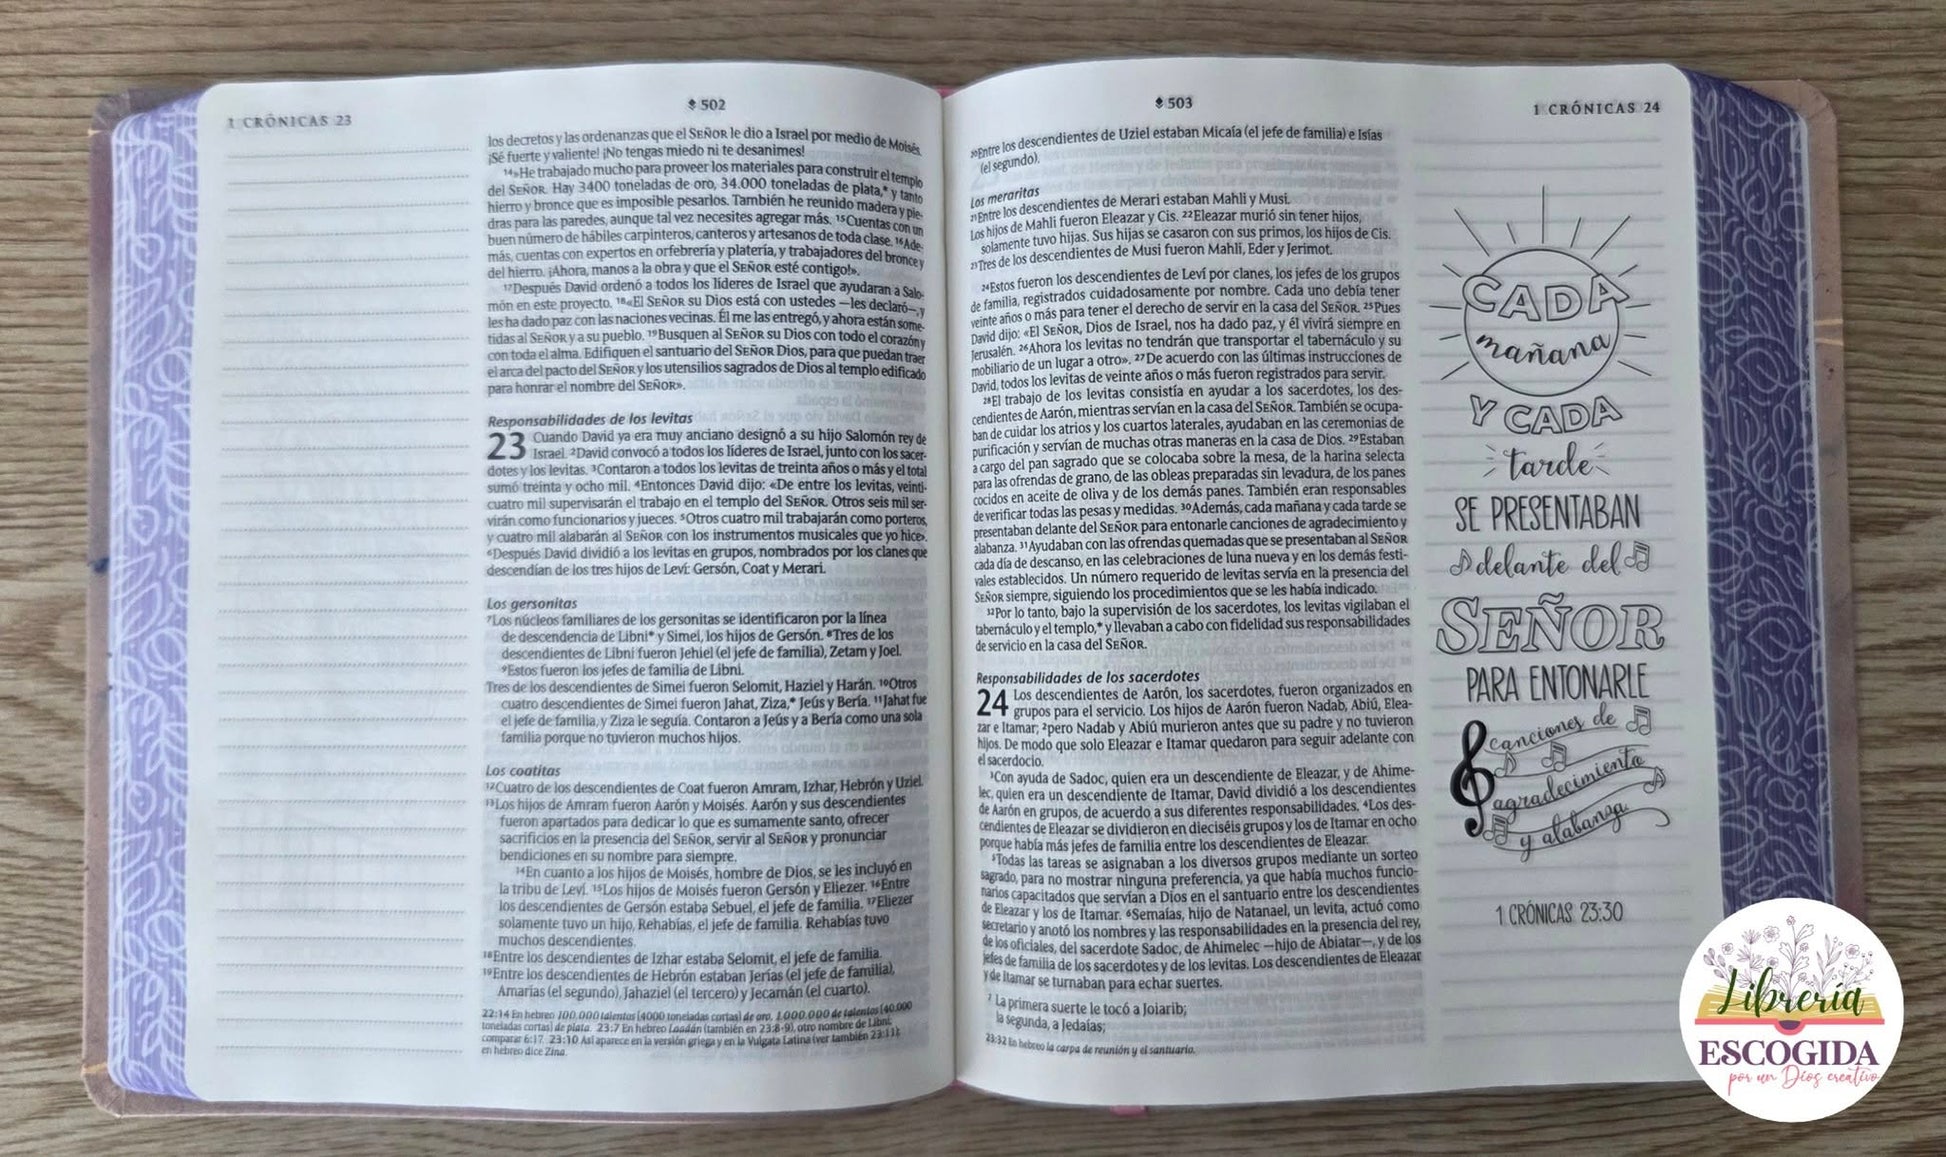 1 CRÓNICAS 23
502
los decretos y las ordenanzas que el SEÑOR le dio a Israel por medio de Moisés.
¡Sé fuerte y valiente! ¡No tengas miedo ni te desanimes!
14»He trabajado mucho para proveer los materiales para construir el templo
del SEÑOR. Hay 3400 toneladas de oro, 34.000 toneladas de plata,* y tanto
hierro y bronce que es imposible pesarlos. También he reunido madera y pie-
dras para las paredes, aunque tal vez necesites agregar más. 15Cuentas con un
buen número de hábiles carpinteros, canteros y artesanos de toda clase. 16Ade-
más, cuentas con expertos en orfebrería y platería, y trabajadores del bronce y
del hierro. ¡Ahora, manos a la obra y que el SEÑOR esté contigo!».
17Después David ordenó a todos los líderes de Israel que ayudaran a Salo-
món en este proyecto. 18«El SEÑOR su Dios está con ustedes —les declaró—, y
les ha dado paz con las naciones vecinas. Él me las entregó, y ahora están some-
tidas al SEÑOR y a su pueblo. 19Busquen al SEÑOR su Dios con todo el corazón y
con toda el alma. Edifiquen el santuario del SEÑOR Dios, para que puedan traer
el arca del pacto del SEÑOR y los utensilios sagrados de Dios al templo edificado
para honrar el nombre del SEÑOR».
Responsabilidades de los levitas
23 Cuando David ya era muy anciano designó a su hijo Salomón rey de
Israel. 2David convocó a todos los líderes de Israel, junto con los sacer-
dotes y los levitas. 3Contaron a todos los levitas de treinta años o más y el total
sumó treinta y ocho mil. 4Entonces David dijo: «De entre los levitas, veinti-
cuatro mil supervisarán el trabajo en el templo del SEÑOR. Otros seis mil ser-
virán como funcionarios y jueces. 5Otros cuatro mil trabajarán como porteros,
y cuatro mil alabarán al SEÑOR con los instrumentos musicales que yo hice».
6Después David dividió a los levitas en grupos, nombrados por los clanes que
descendían de los tres hijos de Leví: Gersón, Coat y Merari.
Los gersonitas
7Los núcleos familiares de los gersonitas se identificaron por la línea
de descendencia de Libni* y Simei, los hijos de Gersón. 8Tres de los
descendientes de Libni fueron Jehiel (el jefe de familia), Zetam y Joel.
9Estos fueron los jefes de familia de Libni.
Tres de los descendientes de Simei fueron Selomit, Haziel y Harán. 10Otros
cuatro descendientes de Simei fueron Jahat, Ziza,* Jeús y Bería. 11Jahat fue
el jefe de familia, y Ziza le seguía. Contaron a Jeús y a Bería como una sola
familia porque no tuvieron muchos hijos.
Los coatitas
12Cuatro de los descendientes de Coat fueron Amram, Izhar, Hebrón y Uziel.
13Los hijos de Amram fueron Aarón y Moisés. Aarón y sus descendientes
fueron apartados para dedicar lo que es sumamente santo, ofrecer
sacrificios en la presencia del SEÑOR, servir al SEÑOR y pronunciar
bendiciones en su nombre para siempre.
14En cuanto a los hijos de Moisés, hombre de Dios, se les incluyó en
la tribu de Leví. 15Los hijos de Moisés fueron Gersón y Eliezer. 16Entre
los descendientes de Gersón estaba Sebuel, el jefe de familia. 17Eliezer
solamente tuvo un hijo, Rehabías, el jefe de familia. Rehabías tuvo
muchos descendientes.
18Entre los descendientes de Izhar estaba Selomit, el jefe de familia.
19Entre los descendientes de Hebrón estaban Jerías (el jefe de familia),
Amarías (el segundo), Jahaziel (el tercero) y Jecamán (el cuarto).
22:14 En hebreo 100.000 talentos [4000 toneladas cortas] de oro, 1.000.000 de talentos [40.000
toneladas cortas] de plata. 23:7 En hebreo Laadán (también en 23:8-9), otro nombre de Libni;
comparar 6:17. 23:10 Así aparece en la versión griega y en la Vulgata Latina (ver también 23:11);
en hebreo dice Zina.
503
1 CRÓNICAS 24
20Entre los descendientes de Uziel estaban Micaía (el jefe de familia) e Isías
(el segundo).
Los meraritas
21Entre los descendientes de Merari estaban Mahli y Musi.
Los hijos de Mahli fueron Eleazar y Cis. 22Eleazar murió sin tener hijos,
solamente tuvo hijas. Sus hijas se casaron con sus primos, los hijos de Cis.
23Tres de los descendientes de Musi fueron Mahli, Eder y Jerimot.
24Estos fueron los descendientes de Leví por clanes, los jefes de los grupos
de familia, registrados cuidadosamente por nombre. Cada uno debía tener
veinte años o más para tener el derecho de servir en la casa del SEÑOR. 25Pues
David dijo: «El SEÑOR, Dios de Israel, nos ha dado paz, y él vivirá siempre en
Jerusalén. 26Ahora los levitas no tendrán que transportar el tabernáculo y su
mobiliario de un lugar a otro». 27De acuerdo con las últimas instrucciones de
David, todos los levitas de veinte años o más fueron registrados para servir.
28El trabajo de los levitas consistía en ayudar a los sacerdotes, los des-
cendientes de Aarón, mientras servían en la casa del SEÑOR. También se ocupa-
ban de cuidar los atrios y los cuartos laterales, ayudaban en las ceremonias de
purificación y servían de muchas otras maneras en la casa de Dios. 29Estaban
a cargo del pan sagrado que se colocaba sobre la mesa, de la harina selecta
para las ofrendas de grano, de las obleas preparadas sin levadura, de los panes
cocidos en aceite de oliva y de los demás panes. También eran responsables
de verificar todas las pesas y medidas. 30Además, cada mañana y cada tarde se
presentaban delante del SEÑOR para entonarle canciones de agradecimiento y
alabanza. 31Ayudaban con las ofrendas quemadas que se presentaban al SEÑOR
cada día de descanso, en las celebraciones de luna nueva y en los demás festi-
vales establecidos. Un número requerido de levitas servía en la presencia del
SEÑOR siempre, siguiendo los procedimientos que se les había indicado.
32Por lo tanto, bajo la supervisión de los sacerdotes, los levitas vigilaban el
tabernáculo y el templo,* y llevaban a cabo con fidelidad sus responsabilidades
de servicio en la casa del SEÑOR.
Responsabilidades de los sacerdotes
24 Los descendientes de Aarón, los sacerdotes, fueron organizados en
grupos para el servicio. Los hijos de Aarón fueron Nadab, Abiú, Elea-
zar e Itamar; 2pero Nadab y Abiú murieron antes que su padre y no tuvieron
hijos. De modo que solo Eleazar e Itamar quedaron para seguir adelante con
el sacerdocio.
3Con ayuda de Sadoc, quien era un descendiente de Eleazar, y de Ahime-
lec, quien era un descendiente de Itamar, David dividió a los descendientes
de Aarón en grupos, de acuerdo a sus diferentes responsabilidades. 4Los des-
cendientes de Eleazar se dividieron en dieciséis grupos y los de Itamar en ocho
porque había más jefes de familia entre los descendientes de Eleazar.
5Todas las tareas se asignaban a los diversos grupos mediante un sorteo
sagrado, para no mostrar ninguna preferencia, ya que había muchos funcio-
narios capacitados que servían a Dios en el santuario entre los descendientes
de Eleazar y los de Itamar. 6Semaías, hijo de Natanael, un levita, actuó como
secretario y anotó los nombres y las responsabilidades en la presencia del rey,
de los oficiales, del sacerdote Sadoc, de Ahimelec —hijo de Abiatar—, y de los
jefes de familia de los sacerdotes y de los levitas. Los descendientes de Eleazar
y de Itamar se turnaban para echar suertes.
7 La primera suerte le tocó a Joiarib;
la segunda, a Jedaías;
23:32 En hebreo la carpa de reunión y el santuario.
CADA
mañana
Y CADA
tarde
SE PRESENTABAN
delante del
SEÑOR
PARA ENTONARLE
canciones de
agradecimiento
y alabanza
1 CRÓNICAS 23:30
Librería
ESCOGIDA
por un Dios creativo